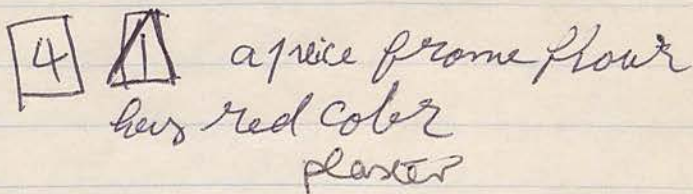 4 1 a peice frome flour
has red color
plaster